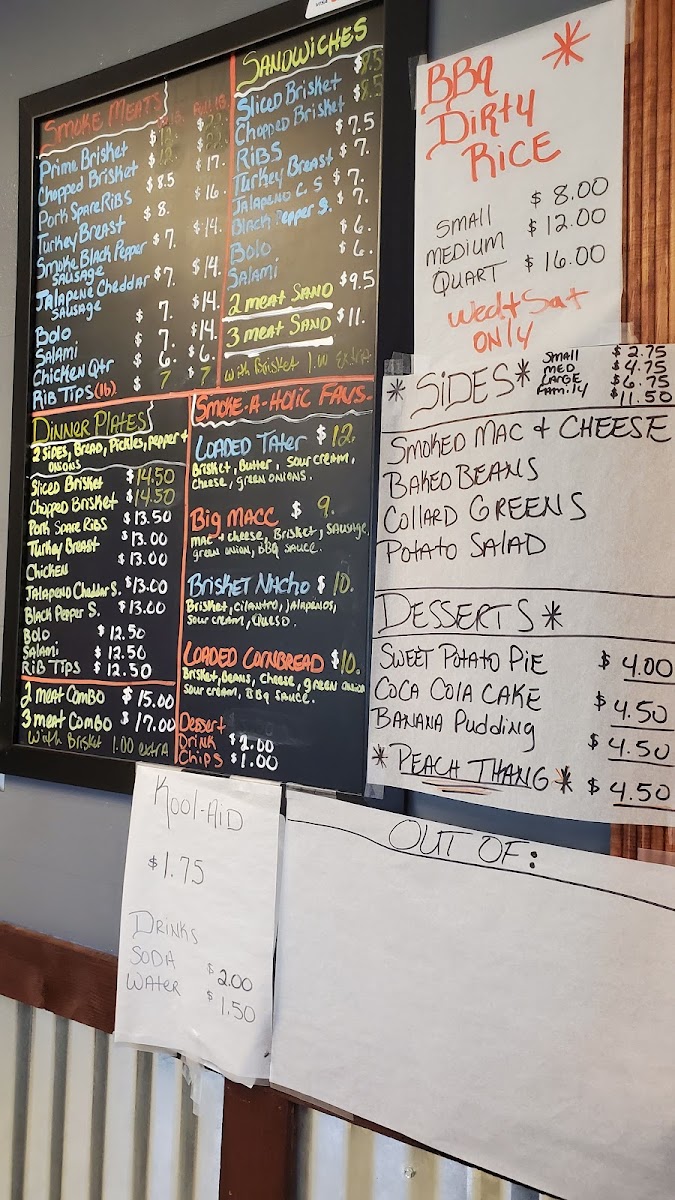 SMOKE MEATS
Prime Brisket
Chopped Brisket
Pork Spare Ribs $8.5 $17.
Turkey Breast $8. $16.
Smoke Black Pepper $7. $14.
Sausage
Jalapeno Cheddar $7. $14.
Sausage
Bolo $7. $14.
Salami $7. $14.
Chicken Qtr $6. $6.
Rib Tips $7 $7
SANDWICHES
Sliced Brisket $8.5
Chopped Brisket $8.5
RiBS $7.5
Turkey Breast $7.
Jalapeno C. S $7.
Black Pepper S. $7.
Bolo $6.
Salami $6.
2 meat SAND $9.5
3 meat SAND $11.
with Brisket 1.00 extra
DINNER PLATES
2 SiDES, BREAD, Pickles, pepper +
onions
Sliced Brisket $14.50
Chopped Brisket $14.50
Pork Spare Ribs $13.50
Turkey Breast $13.00
Chicken $13.00
Jalapeno Cheddar S. $13.00
Black Pepper S. $13.00
Bolo $12.50
Salami $12.50
RiB TiPS $12.50
2 meat Combo $15.00
3 meat Combo $17.00
With Brisket 1.00 extra
SMOKE-A-Holic FAVS.
LOADED TATER $12.
Brisket, Butter, sour cream,
cheese, green onions.
Big MACC $9.
mac + cheese, Brisket, sausage,
green onion, BBQ sauce.
BRISKET NACHO $10.
Brisket, cilantro, jalapenos,
sour cream, Queso.
LOADED CORNBREAD $10.
Brisket, Beans, cheese, green onion
sour cream, BBQ sauce.
Dessert
Drink $2.00
Chips $1.00
BBQ
DiRTY
RiCE
SMALL $8.00
MEDIUM $12.00
QUART $16.00
Wed + Sat
ONLY
* SiDES *
SMALL $2.75
MED $4.75
LARGE $6.75
FAMiLY $11.50
SMOKED MAC + CHEESE
BAKED BEANS
COLLARD GREENS
POTATO SALAD
DESSERTS *
SWEET POTATO PiE $4.00
COCA COLA CAKE $4.50
BANANA Pudding $4.50
* PEACH THANG * $4.50
KOOL-AID
$1.75
DRiNKS
SODA $2.00
WATER $1.50
OUT OF: